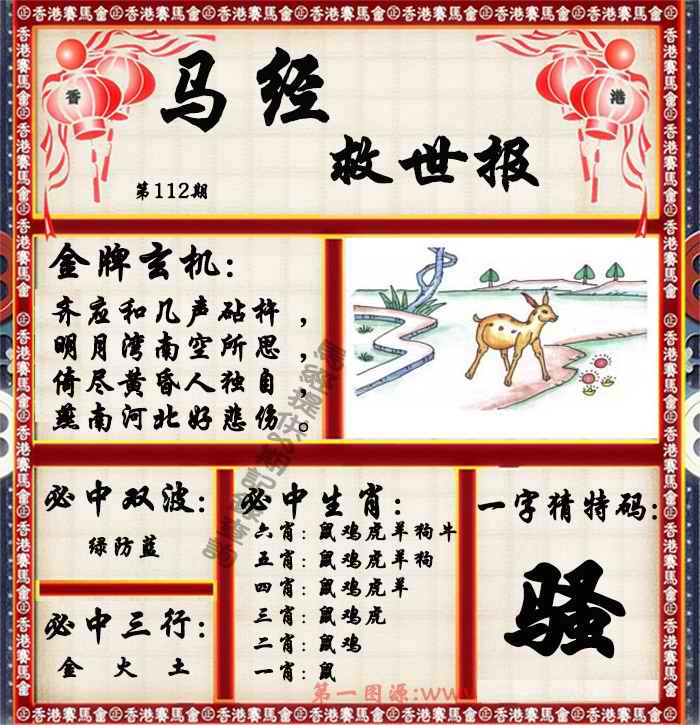 香港賽馬會
香
港
马经
救世报
第112期
金牌玄机：
齐应和几声砧杵，
明月湾南空所思，
倚尽黄昏人独自，
燕南河北好悲伤。
必中双波：
绿防蓝
必中三行：
金 火 土
必中生肖：
六肖：鼠鸡虎羊狗牛
五肖：鼠鸡虎羊狗
四肖：鼠鸡虎羊
三肖：鼠鸡虎
二肖：鼠鸡
一肖：鼠
一字猜特码：
骚
第一图源:www